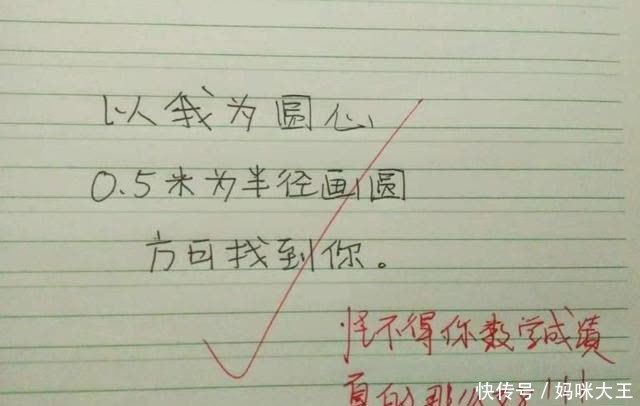 以我为圆心
0.5米为半径画圆
方可找到你。
怪不得你数学成绩
真的那么
快传号／妈咪大王